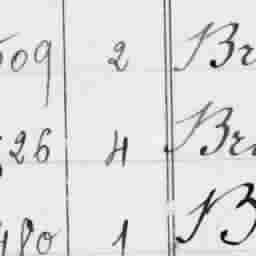 509 2 Br
526 4 Bra
480 1 B